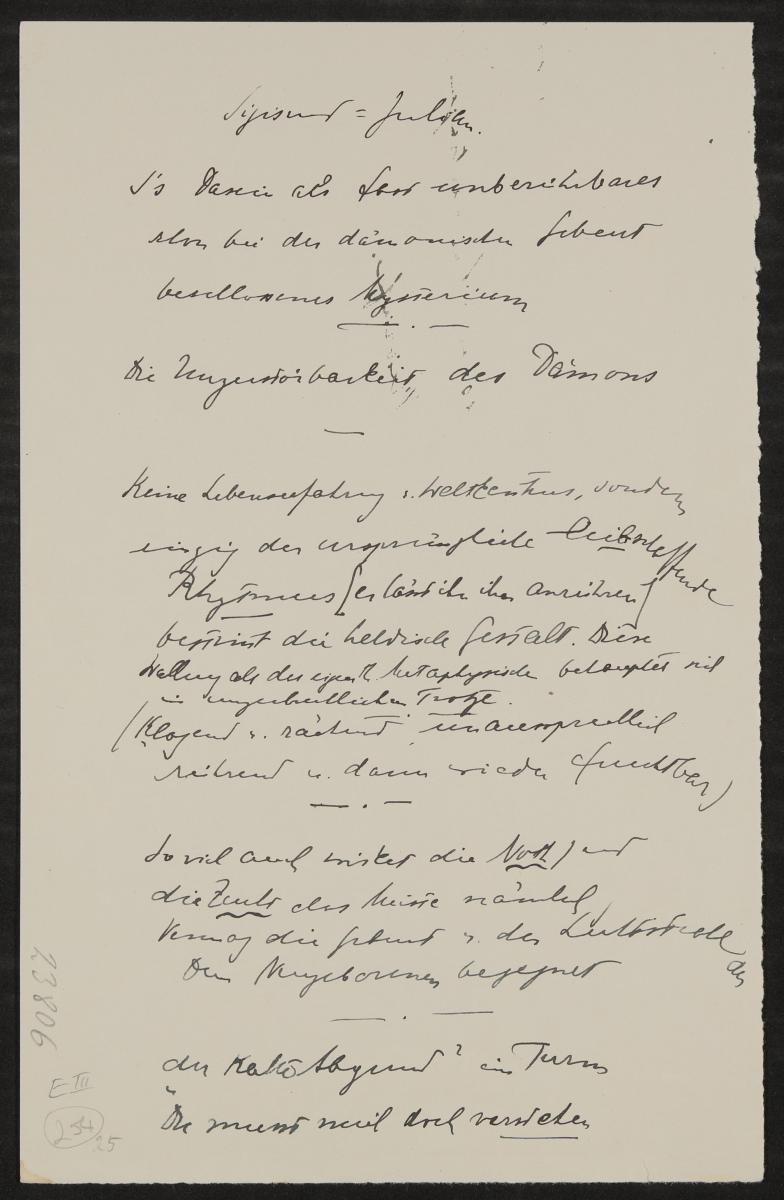 Sigismund = Julian.
S's Dasein als fast unberührbares
schon bei der dämonischen Geburt
beschlossenes Mysterium
Die Unzerstörbarkeit des Dämons
Keine Lebenserfahrung u. Weltkenntnis, sondern
einzig der ursprüngliche leibschaffende
Rhytmus [er lässt ihn ihn anrühren]
bestimt die heldische Gestalt. Diese
Wallung als der eigentl. Metaphysische behauptet sich
in ungeheuerlichem Trotze.
(Klagend u. rächend, unaussprechlich
rührend u. dann wieder furchtbar)
So viel auch wirket die Noth, und
die Zucht, das Meiste nämlich
Vermag die Geburt u. der Lichtstrahl der
Dem Neugeborenen begegnet
der kalte Abgrund? im Turm
"Du musst mich doch verstehen
23806
E III
254
25